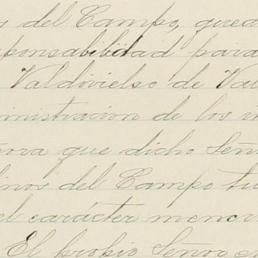 del Campo, qued
ponsabilidad para
Valdivielso de Va
ministracion de los i
que dicho Seño
inos del Campo tu
el carácter menci
El propio Señor